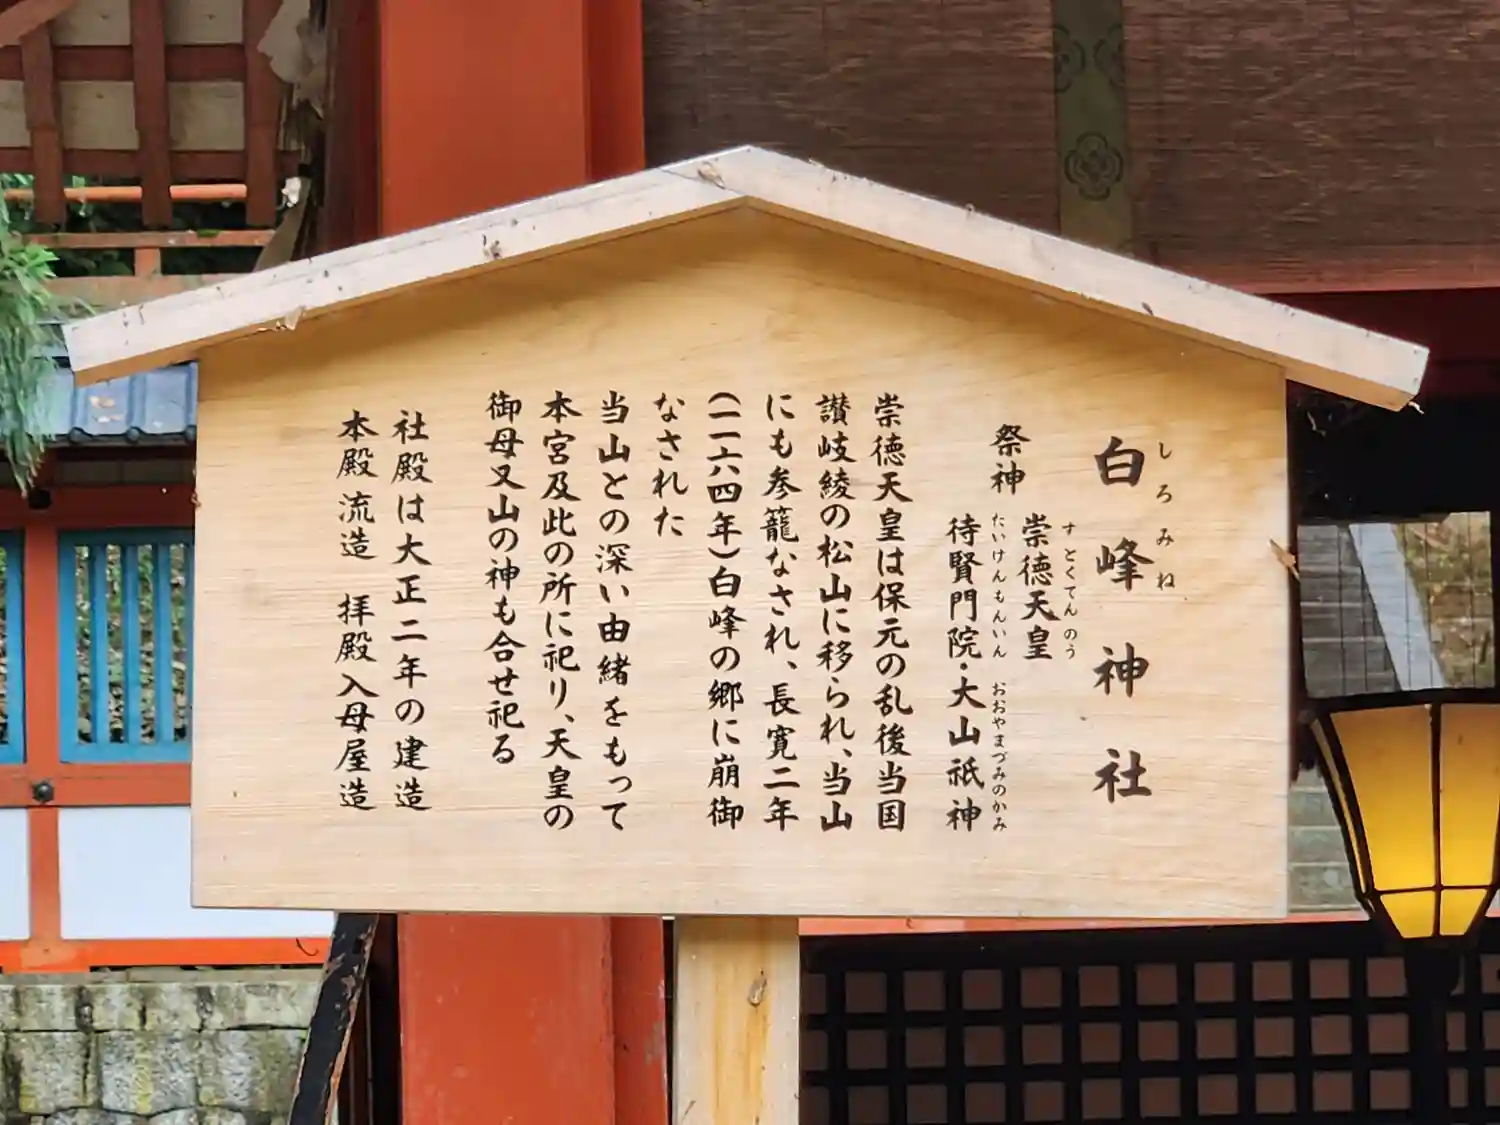 白峰神社
しろみね
祭神
崇徳天皇
すとくてんのう
待賢門院・大山祇神
たいけんもんいん おおやまづみのかみ
崇徳天皇は保元の乱後当国
讃岐綾の松山に移られ、当山
にも参籠なされ、長寛二年
(一一六四年)白峰の郷に崩御
なされた
当山との深い由緒をもって
本宮及此の所に祀り、天皇の
御母又山の神も合せ祀る
社殿は大正二年の建造
本殿流造 拝殿入母屋造